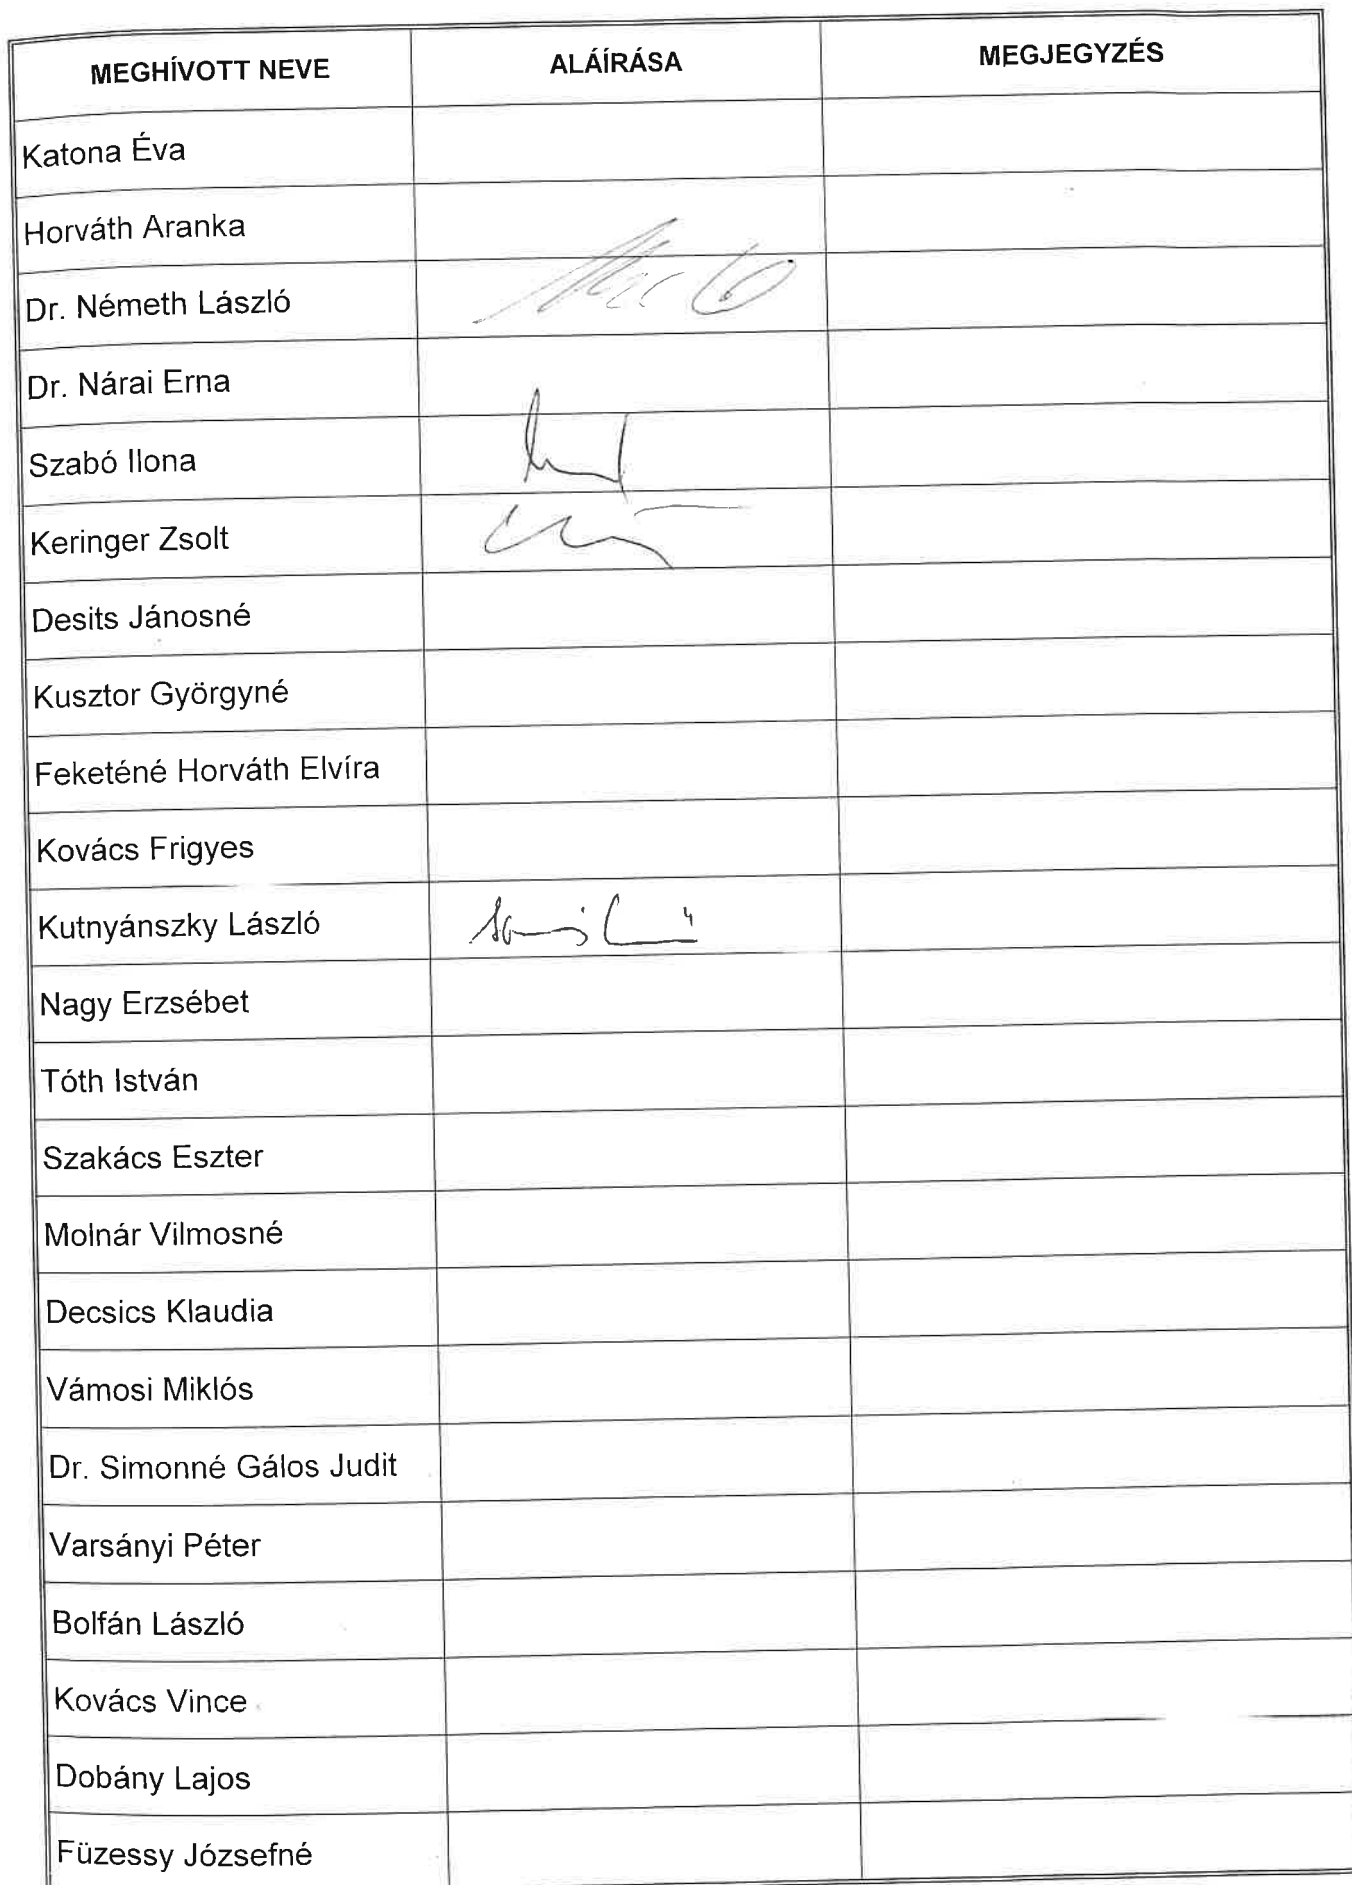 MEGHÍVOTT NEVE ALÁÍRÁSA MEGJEGYZÉS
Katona Éva
Horváth Aranka
Dr. Németh László
Dr. Nárai Erna
Szabó Ilona
Keringer Zsolt
Desits Jánosné
Kusztor Györgyné
Feketéné Horváth Elvíra
Kovács Frigyes
Kutnyánszky László
Nagy Erzsébet
Tóth István
Szakács Eszter
Molnár Vilmosné
Decsics Klaudia
Vámosi Miklós
Dr. Simonné Gálos Judit
Varsányi Péter
Bolfán László
Kovács Vince
Dobány Lajos
Füzessy Józsefné